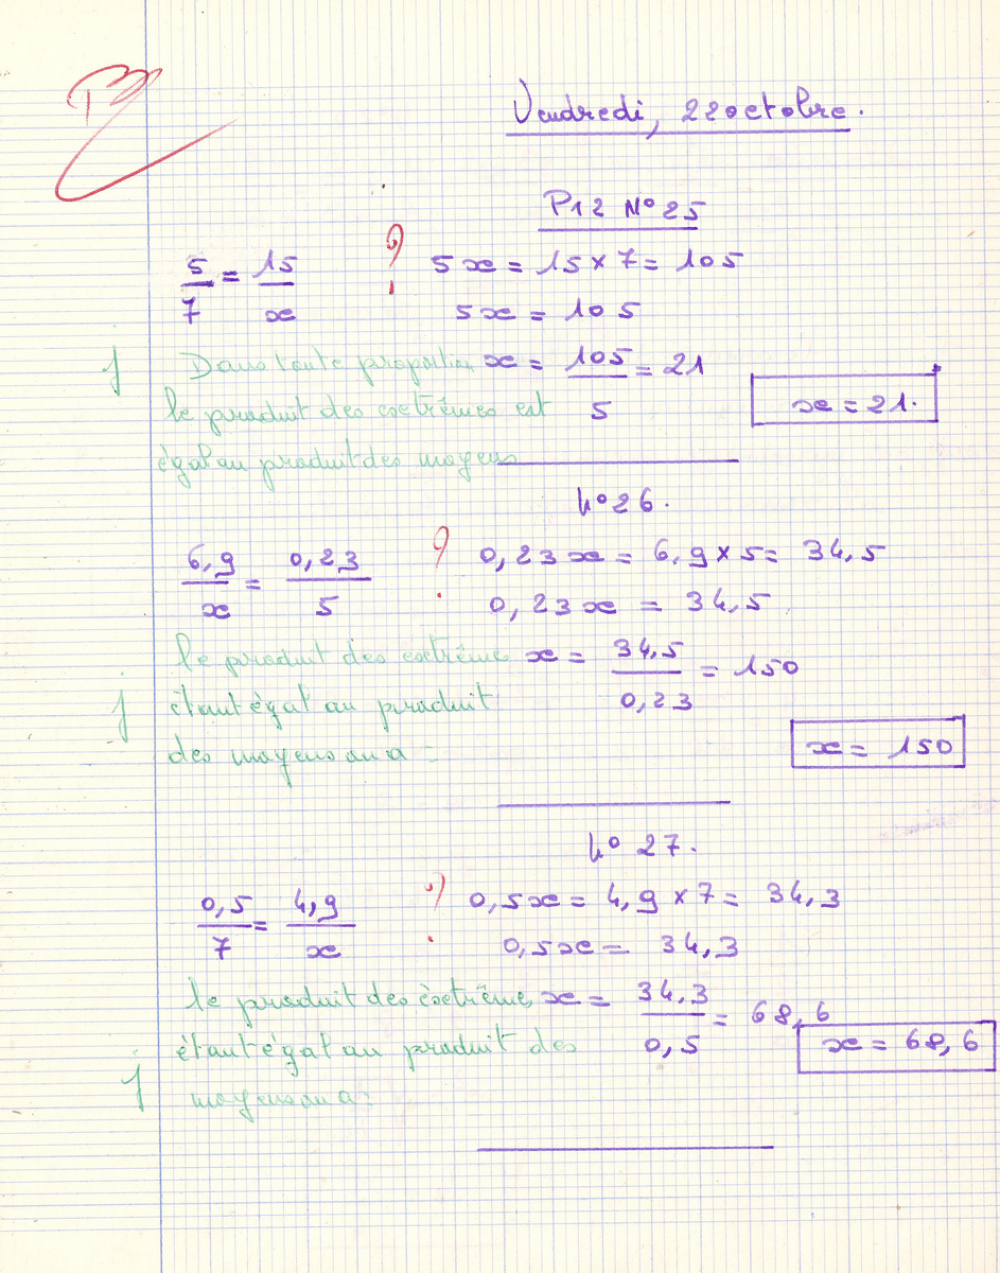 TB
Vendredi, 22 octobre.
P12 N° 25
5/7 = 15/x ? 5x = 15 x 7 = 105
5x = 105
Dans toute proportion x = 105/5 = 21
le produit des extrêmes est
x = 21.
égal au produit des moyens
N° 26.
6,9/x = 0,23/5 ? 0,23x = 6,9 x 5 = 34,5
0,23x = 34,5
le produit des extrêmes x = 34,5/0,23 = 150
étant égal au produit
x = 150
des moyens on a :
N° 27.
0,5/7 = 4,9/x ? 0,5x = 4,9 x 7 = 34,3
0,5x = 34,3
le produit des extrêmes x = 34,3/0,5 = 68,6
étant égal au produit des
x = 68,6
moyens on a :